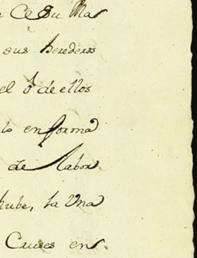 e CeSu Mas
sus herederos
el ō de ellos
lo en forma
de labor
hube, la Una
Cruces en